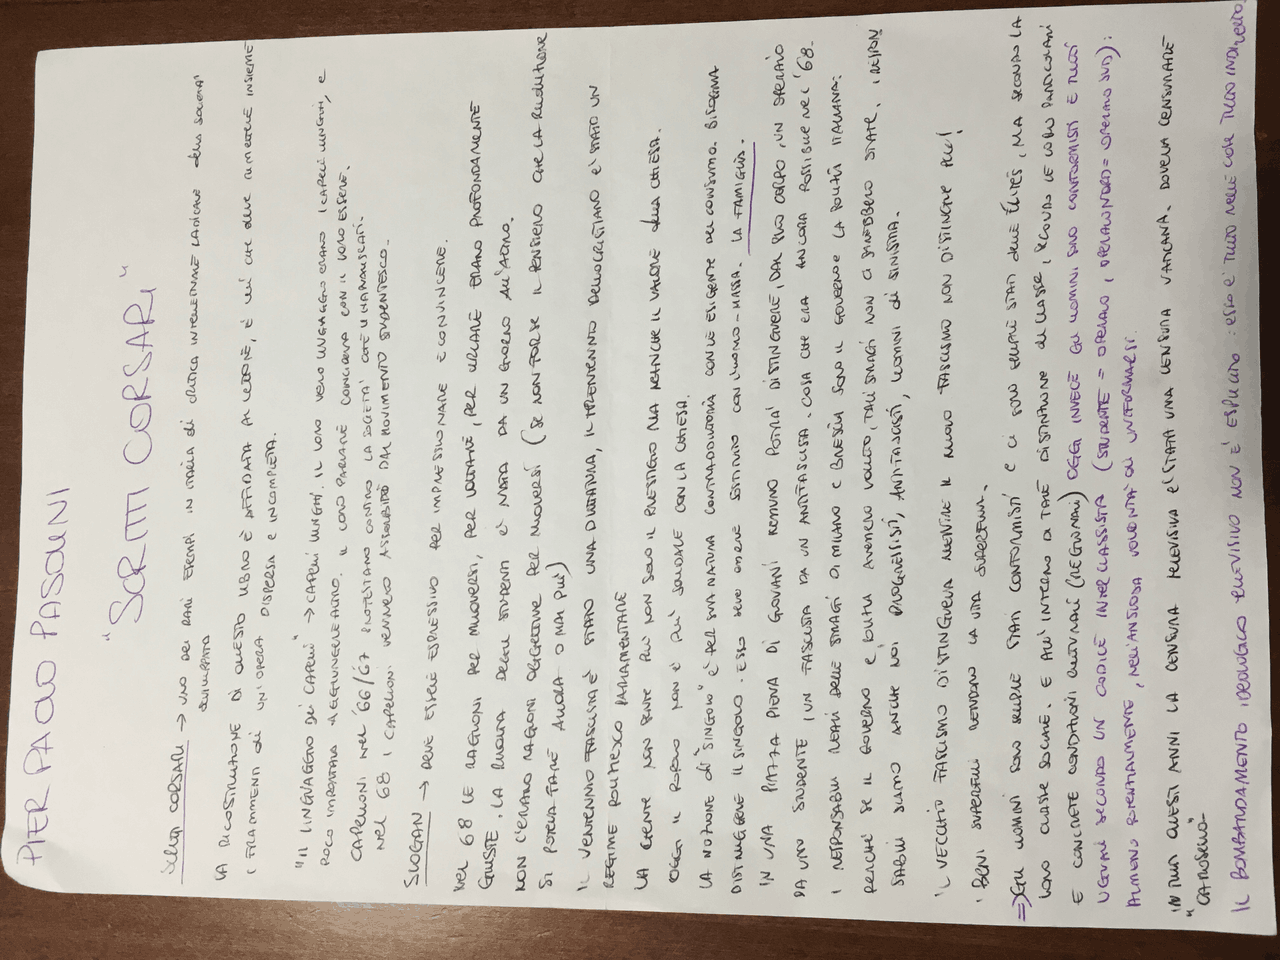 PIER PAOLO PASOLINI
"SCRITTI CORSARI"
SCRITTI CORSARI → UNO DEI RARI ESEMPI IN ITALIA di CRITICA INTELLETTUALE RADICALE della SOCIETA'
SVILUPPATA
LA RICOSTRUZIONE DI QUESTO LIBRO È AFFIDATA AL LETTORE, È LUI CHE DEVE RIMETTERE INSIEME
I FRAMMENTI di UN'OPERA DISPERSA E INCOMPLETA.
"IL LINGUAGGIO DEI CAPELLI" → CAPELLI LUNGHI. IL LORO VERO LINGUAGGIO ERANO I CAPELLI LUNGHI, E
POCO IMPORTAVA AGGIUNGERE ALTRO. IL LORO PARLARE COINCIDEVA CON IL LORO ESSERE.
CAPELLONI NEL '66/67 PROTESTAVANO CONTRO LA SOCIETÀ
NEL 68 I CAPELLONI VENNERO ASSORBITI DAL MOVIMENTO STUDENTESCO.
SLOGAN → DEVE ESSERE ESPRESSIVO PER IMPRESSIONARE E CONVINCERE.
NEL 68 LE RAGIONI PER MUOVERSI, PER LOTTARE, PER URLARE ERANO PROFONDAMENTE
GIUSTE. LA RIVOLTA DEGLI STUDENTI È NATA DA UN GIORNO ALL'ALTRO.
NON C'ERANO RAGIONI OGGETTIVE PER MUOVERSI (SE NON FORSE IL PENSIERO CHE LA RIVOLUZIONE
SI POTEVA FARE ALLORA O MAI PIU')
IL VENTENNIO FASCISTA È STATO UNA DITTATURA, IL TRENTENNIO DEMOCRISTIANO E' STATO UN
REGIME POLIZIESCO PARLAMENTARE
LA GENTE NON SENTE PIU' NON SOLO IL PRESTIGIO MA NEANCHE IL VALORE della CHIESA.
OGGI IL POPOLO NON È PIU' SOLIDALE CON LA CHIESA.
LA NOZIONE di "SINGOLO" E' PER SUA NATURA CONTRADDITTORIA CON LE ESIGENZE DEL CONSUMO. BISOGNA
DISTRUGGERE IL SINGOLO. ESSO DEVE ESSERE SOSTITUITO CON L'UOMO-MASSA. LA FAMIGLIA.
IN UNA PIAZZA PIENA DI GIOVANI NESSUNO POTRA' DISTINGUERE, DAL SUO CORPO, UN OPERAIO
DA UNO STUDENTE, UN FASCISTA DA UN ANTIFASCISTA. COSA CHE ERA ANCORA POSSIBILE NEL '68.
I RESPONSABILI REALI DELLE STRAGI DI MILANO E BRESCIA SONO IL GOVERNO E LA POLIZIA ITALIANA:
PERCHÈ SE IL GOVERNO E POLIZIA AVESSERO VOLUTO, TALI STRAGI NON CI SAREBBERO STATE. I RESPON
SABILI SIAMO ANCHE NOI PROGRESSISTI, ANTIFASCISTI, UOMINI di SINISTRA.
IL VECCHIO FASCISMO DISTINGUEVA MENTRE IL NUOVO FASCISMO NON DISTINGUE PIU'!
I BENI SUPERFLUI RENDONO LA VITA SUPERFLUA.
⇒ GLI UOMINI SONO SEMPRE STATI CONFORMISTI E CI SONO SEMPRE STATI DELLE ÉLITES, MA SECONDO LA
LORO CLASSE SOCIALE. E ALL'INTERNO DI TALE DISTINZIONE DI CLASSE, SECONDO LE LORO PARTICOLARI
E CONCRETE CONDIZIONI CULTURALI (REGIONALI) OGGI INVECE GLI UOMINI SONO CONFORMISTI E TUTTI
UGUALI SECONDO UN CODICE INTERCLASSISTA (STUDENTE = OPERAIO, OPERAIO NORD = OPERAIO SUD):
ALMENO POTENZIALMENTE, NELL'ANSIOSA VOLONTA' DI UNIFORMARSI.
IN TUTTI QUESTI ANNI LA CENSURA TELEVISIVA E' STATA UNA CENSURA VATICANA. DOVEVA CENSURARE
"CAROSELLO"
IL BOMBARDAMENTO IDEOLOGICO TELEVISIVO NON È ESPLICITO: ESSO E' TUTTO NELLE COSE TUTTO INDIRETTO.